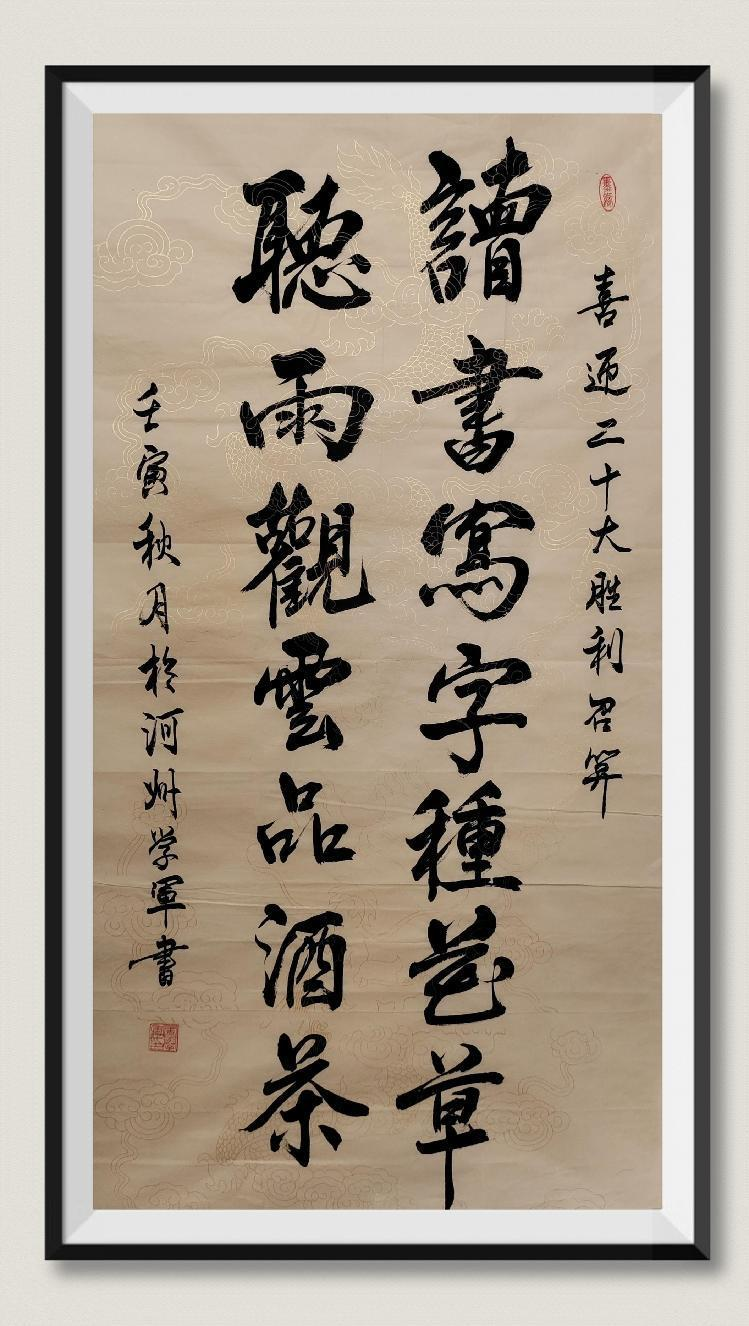 喜迎二十大胜利召開
讀書寫字種花草
聽雨觀雲品酒茶
壬寅秋月於河州学軍書